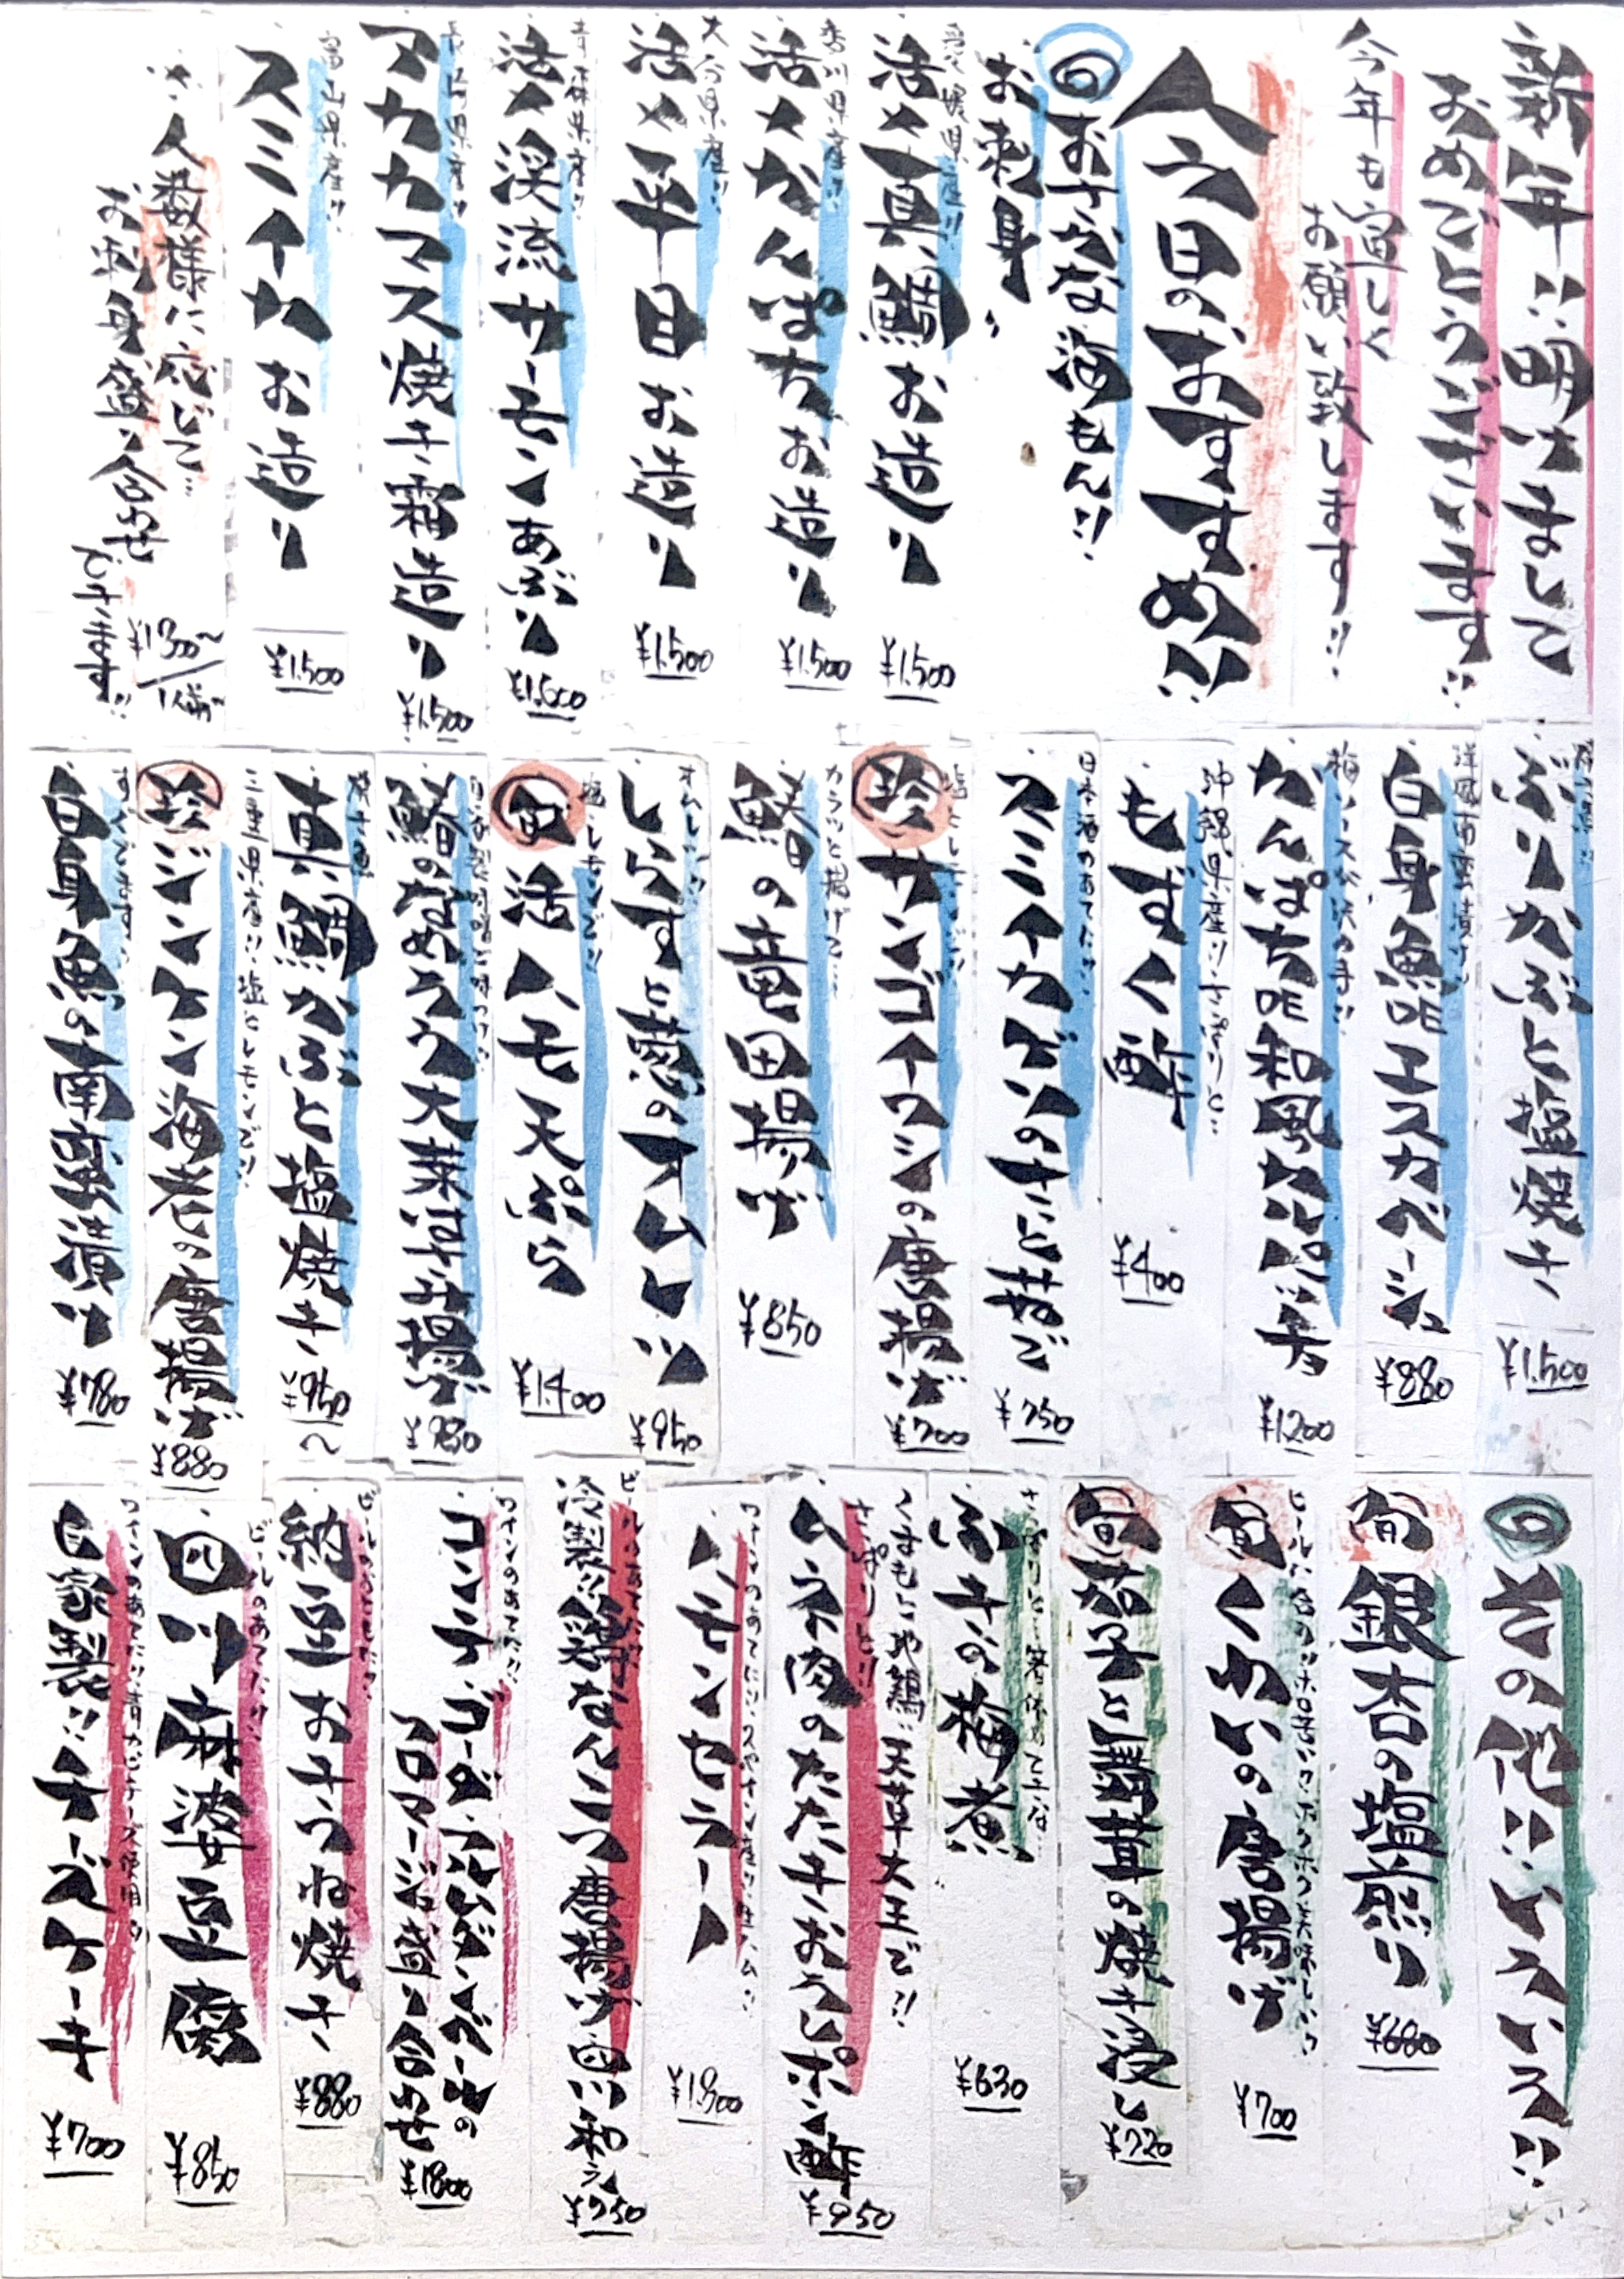 新年!!明けまして
おめでとうございます!!
今年も宜しく
お願い致します!!
今日のおすすめ!!
おさかな海もん!!
お刺身
愛媛県産!!
活〆真鯛お造り
¥1,500
香川県産!!
活〆かんぱちお造り
¥1,500
大分県産!!
活〆平目お造り
¥1,500
青森県産!!
活〆渓流サーモンあぶり
¥1,500
アカカマス焼き霜造り
¥1,500
富山県産!!
スミイカお造り
¥1,500
人数様に応じて…
お刺身盛り合わせ
できます!!
¥1300〜/1人前
ぶりかぶと塩焼き
¥1,500
洋風南蛮漬け
白身魚DEエスカベーシュ
¥880
かんぱちDE和風カルパッチョ
¥1200
沖縄県産!!さっぱりと…
もずく酢
¥400
日本酒のあてに!!
スミイカゲソのたこわさびで
¥750
塩とレモンで!!
珍 サンゴイワシの唐揚げ
¥700
カラッと揚げて…
鰆の竜田揚げ
¥850
オムレツ!!
しらすと葱のオムレツ
¥950
塩とレモンで!!
旬 活ハモ天ぷら
¥1,400
鰆のなめろう大葉はさみ揚げ
¥980
真鯛かぶと塩焼き
¥950〜
三重県産!!塩とレモンで!!
珍 ジンケン海老の唐揚げ
¥880
すぐできます!!
白身魚の南蛮漬け
¥780
その他!!いろいろ!!
旬 銀杏の塩煎り
¥680
旬 くわいの唐揚げ
¥700
旬 茄子と舞茸の焼き浸し
¥720
さっぱりと…箸休めてきな…
ふきの梅煮
¥630
くまもと地鶏!!天草大王で!!
さっぱりと!!
ムネ肉のたたきおろしポン酢
¥950
ハモンセラーノ
¥1,300
ビールのあてに!!
冷製!!鶏なんこつ唐揚げ四川和え
¥750
ワインのあてに!!
コンテ、ゴーダ、マルダンダールの
フロマージュ盛り合わせ
¥1800
納豆おきつね焼き
¥880
ビールのあてに!!
四川麻婆豆腐
¥850
自家製!!チーズケーキ
¥700